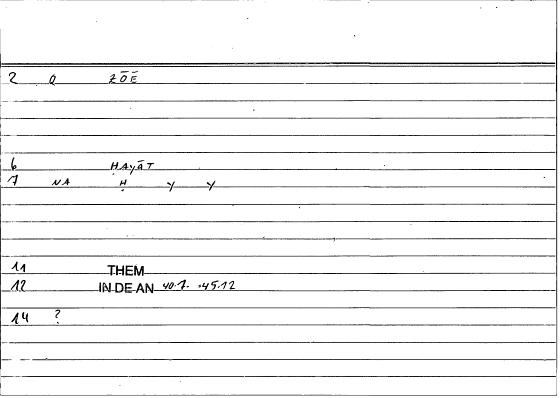 2 Q ZŌĒ
6 ḤAyāT
7 NA Ḥ y y
11 THEM
12 IN DE AN 40.7. .45.12
14 ?